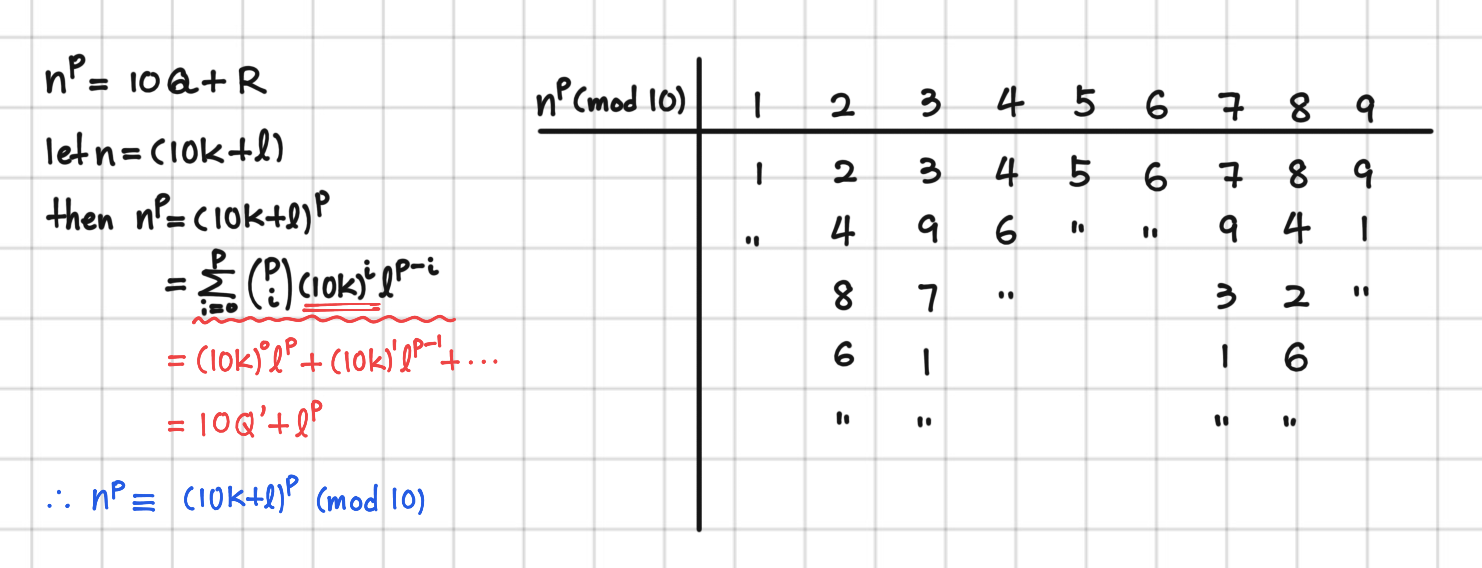 n^p = 10Q + R
let n = (10k+l)
then n^p = (10k+l)^p
= Σ_{i=0}^{p} (p i) (10k)^i l^{p-i}
= (10k)^0 l^p + (10k)^1 l^{p-1} + ...
= 10Q' + l^p
∴ n^p ≡ (10k+l)^p (mod 10)
n^p (mod 10) 1 2 3 4 5 6 7 8 9
1 2 3 4 5 6 7 8 9
" 4 9 6 " " 9 4 1
8 7 " 3 2 "
6 1 1 6
" " " "